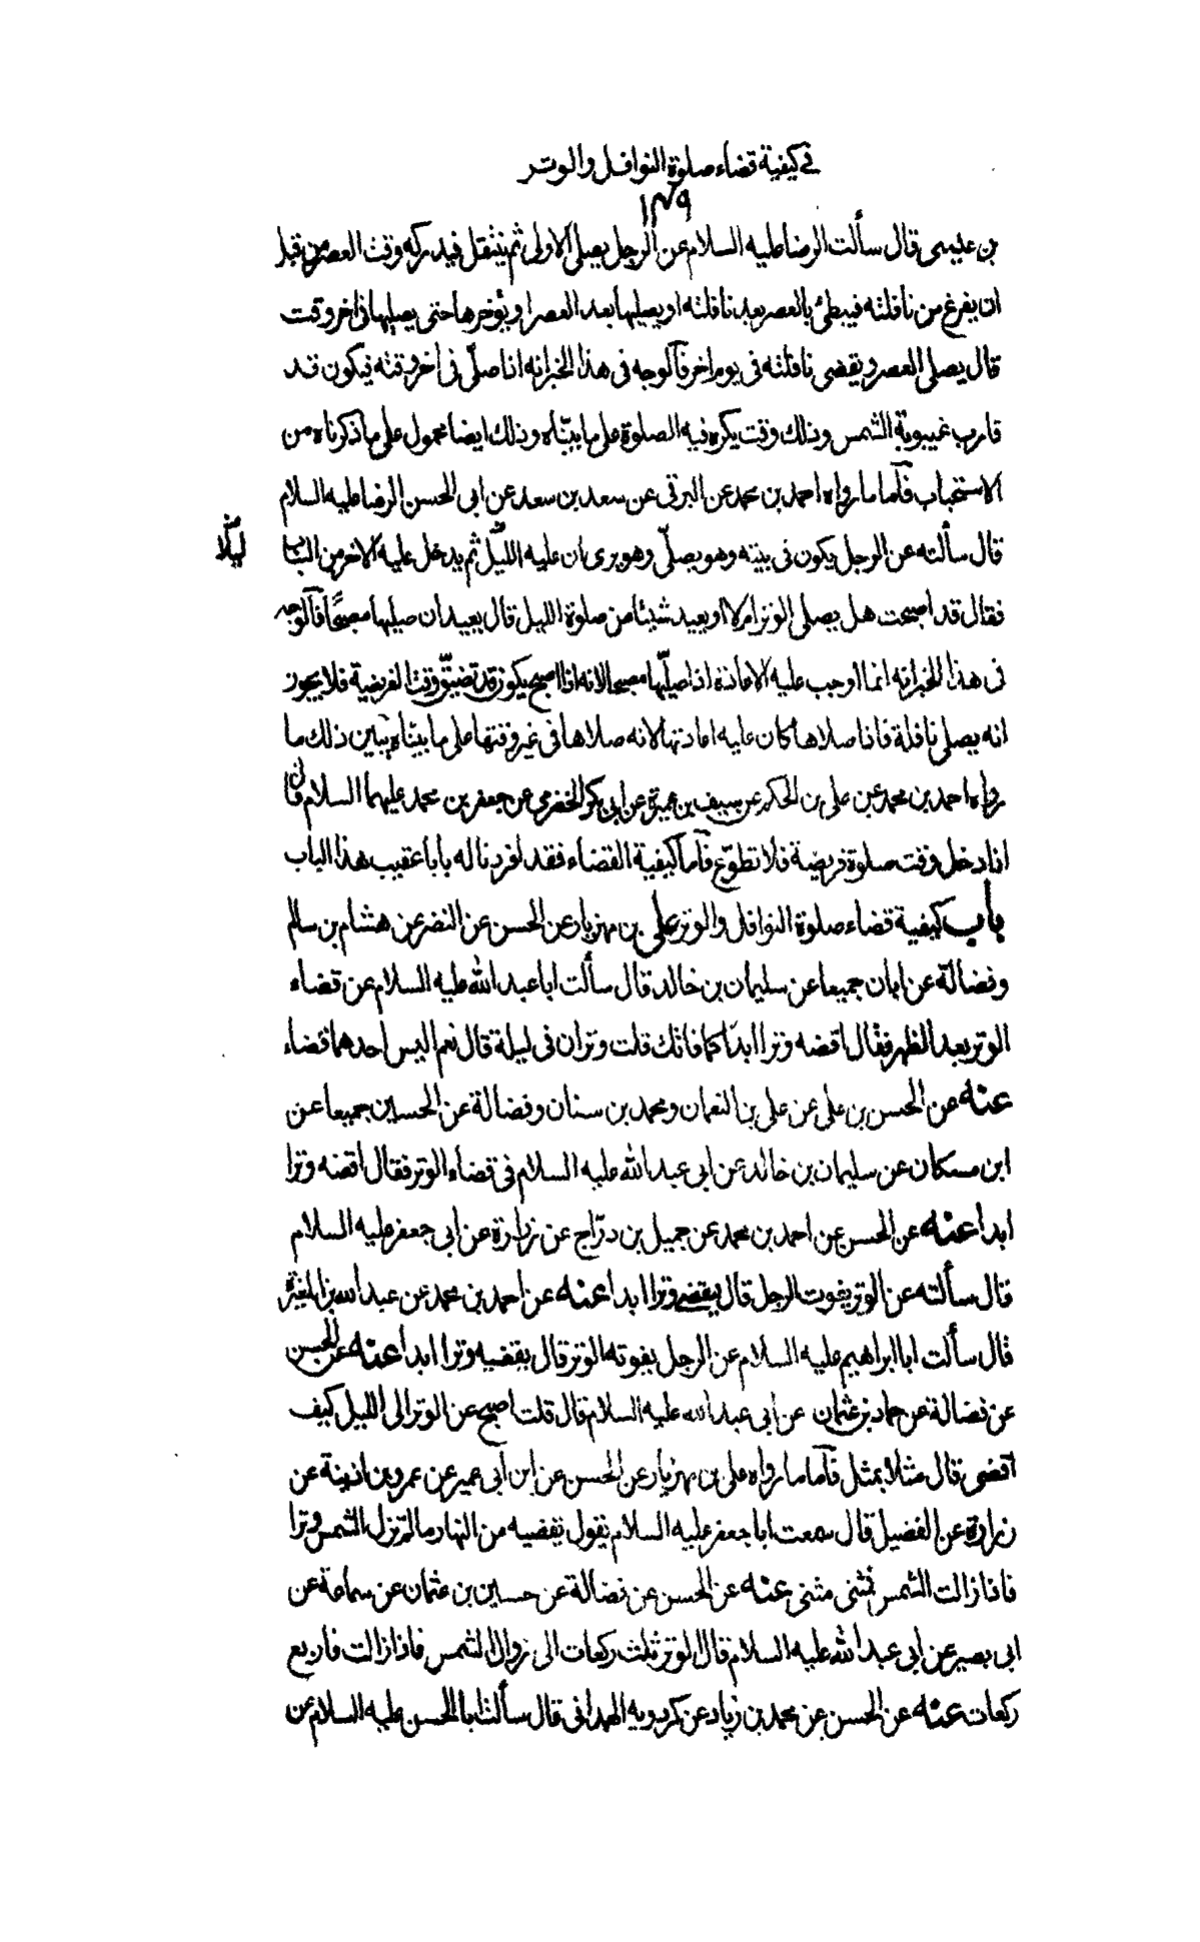 في كيفية قضاء صلوة النوافل والوتر
١٤٩
بن عيسى قال سألت الرضا عليه السلام عن الرجل يصلي الاولى ثم يتنفل فيدركه وقت العصر من قبل
ان يفرغ من نافلته فيبطئ بالعصر بعد نافلته او يصليها بعد العصر او يؤخرها حتى يصليها في اخر وقت
قال يصلي العصر ويقضي نافلته في يوم اخر فالوجه في هذا الخبر انه اذا صلّى في اخر وقته فيكون قد
قارب غيبوبة الشمس وذلك وقت يكره فيه الصلوة على ما بيّناه وذلك ايضا محمول على ما ذكرناه من
الاستحباب فآما ما رواه احمد بن محمد عن البرقي عن سعد بن سعد عن ابي الحسن الرضا عليه السلام
قال سألته عن الرجل يكون في بيته وهو يصلّي وهو يرى أن عليه الليّل ثم يدخل عليه الاخر من الباب
ليلًا
فقال قد اصبحت هل يصلي الوتر ام لا او يعيد شيئا من صلوة الليل قال يعيد أن صيلها مصبحًا فآلوجه
في هذا الخبر انه انما اوجب عليه الاعادة اذا صيلّها مصبحا لانه اذا اصبح يكون قد تضيّق وقت الفريضة فلا يجوز
انه يصلي نافلة فاذا صلاها كان عليه اعادتها لانه صلاها في غير وقتها على ما بيّناه يبّين ذلك ما
رواه احمد بن محمد عن علي بن الحكم عن سييف بن عميرة عن ابي بكر الحضرمي عن جعفر بن محمد عليهما السلام قال
اذا دخل وقت صلوة فريضة فلا تطوّع فآما كيفية القضاء فقد افردنا له بابا عقيب هذا الباب
باب كيفية قضاء صلوة النوافل والوتر علي بن مهزيار عن الحسن عن النضر عن هشام بن سالم
وفضالة عن ابان جميعا عن سليمان بن خالد قال سألت ابا عبد الله عليه السلام عن قضاء
الوتر بعد الظهر فقال اقضه وترا ابدًا كما فاتك قلت وتران في ليلة قال نعم اليس احدهما قضاء
عنه عن الحسن بن علي عن علي بن النعمان ومحمد بن سنان وفضالة عن الحسين جميعا عن
ابن مسكان عن سليمان بن خالد عن ابي عبد الله عليه السلام في قضاء الوتر فقال اقضه وترا
ابدا عنه عن الحسن عن احمد بن محمد عن جميل بن درّاج عن زرارة عن ابي جعفر عليه السلام
قال سألته عن الوتر يفوت الرجل قال يقضي وترا ابدا عنه عن احمد بن محمد عن عبد الله بن المغيرة
قال سألت ابا ابراهيم عليه السلام عن الرجل يفوته الوتر قال يقضيه وترا ابدا عنه عن الحسن
عن فضالة عن حماد بن عثمان عن ابي عبد الله عليه السلام قال قلت اصبح عن الوتر الى الليل كيف
اقضي قال مثلا بمثل فآما ما رواه علي بن مهزيار عن الحسن عن ابن ابي عمير عن عمر بن اذينة عن
زرارة عن الفضيل قال سمعت ابا جعفر عليه السلام يقول يقضيه من النهار ما لم تزل الشمس وترا
فاذا زالت الشمس فمثنى مثنى عنه عن الحسن عن فضالة عن حسين بن عثمان عن سماعة عن
ابي بصير عن ابي عبد الله عليه السلام قال الوتر ثلث ركعات الى زوال الشمس فاذا زالت فاربع
ركعات عنه عن الحسن عن محمد بن زياد عن كردويه الهمداني قال سألت ابا الحسن عليه السلام عن